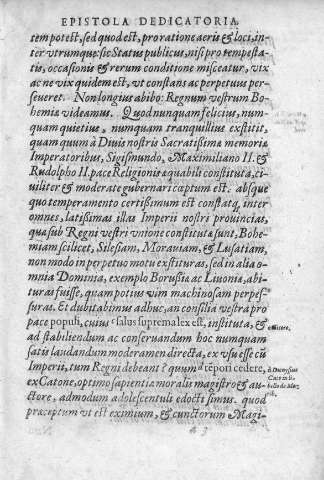 EPISTOLA DEDICATORIA.
tempotest, sed quod est, pro ratione aeris & loci, in-
ter utrumque: sic Status publicus, nisi pro tempesta-
tis, occasionis & rerum conditione misceatur, vix
ac ne vix quidem est, ut constans ac perpetuus per-
severet. Non longius abibo: Regnum vestrum Bo-
hemia videamus. Quod nunquam felicius, nun-
quam quietius, nunquam tranquillius exstitit,
quam quum à Divis nostris Sacratissimæ memoriæ
Imperatoribus, Sigismundo, Maximiliano II. &
Rudolpho II. pace Religionis æquabili constituta, ci-
viliter & moderate gubernari cœptum est. absque
quo temperamento certissimum est constatq, inter
omnes, latissimas illas Imperii nostri provincias,
quæ sub Regni vestri unione constitutæ sunt, Bohe-
miam scilicet, Silesiam, Moraviam, & Lusatiam,
non modo in perpetuo motu exstituras, sed in alia o-
mnia Dominia, exemplo Borussiæ ac Livoniæ, abi-
turas fuisse, quam potius vim machinosam perpes-
suras. Et dubitabimus adhuc, an consilia vestra pro
pace populi, cuius salus suprema lex est, instituta, &
ad stabiliendum ac conservandum hoc nunquam
satis laudandum moderamen directa, ex usu esse cũ
Imperii, tum Regni debeant? quum tempori cedere,
ex Catone, optimo sapientiæ moralis magistro & au-
ctore, admodum adolescentuli edocti simus. quod
præceptum ut est eximium, & cunctorum Magi-
à Dionysius